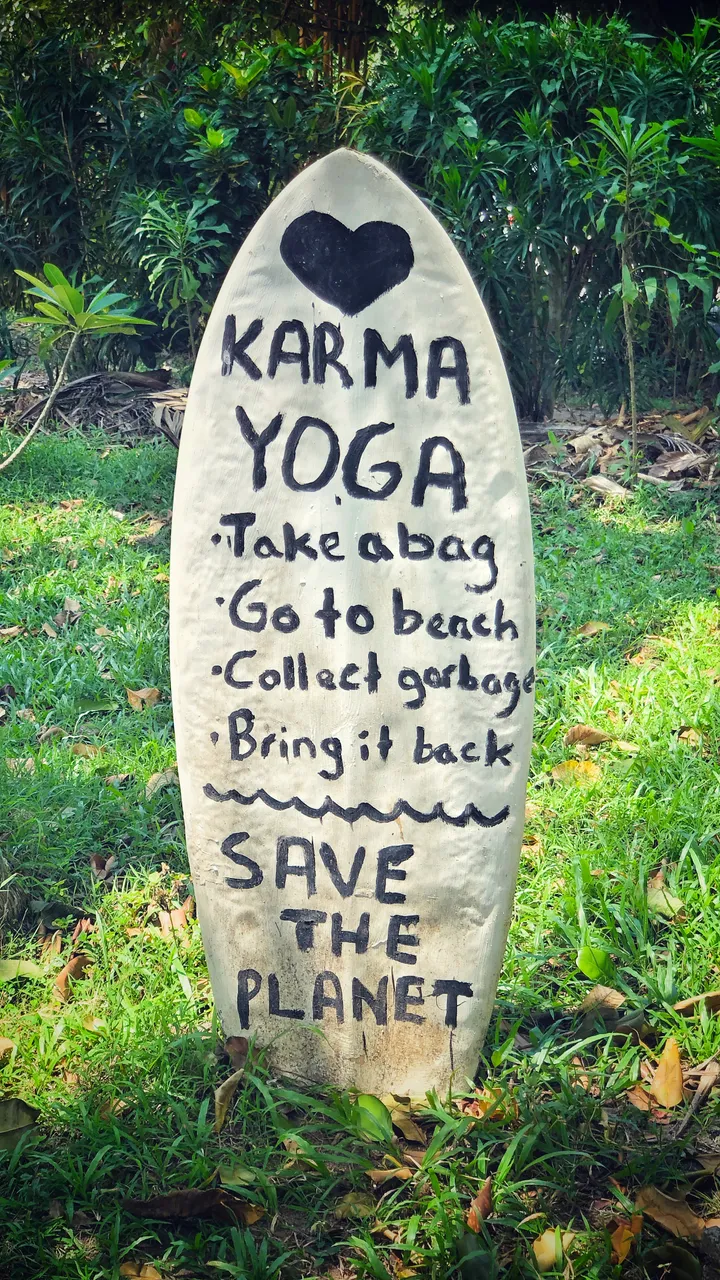 KARMA
YOGA
·Take a bag
·Go to beach
·Collect garbage
·Bring it back
SAVE
THE
PLANET